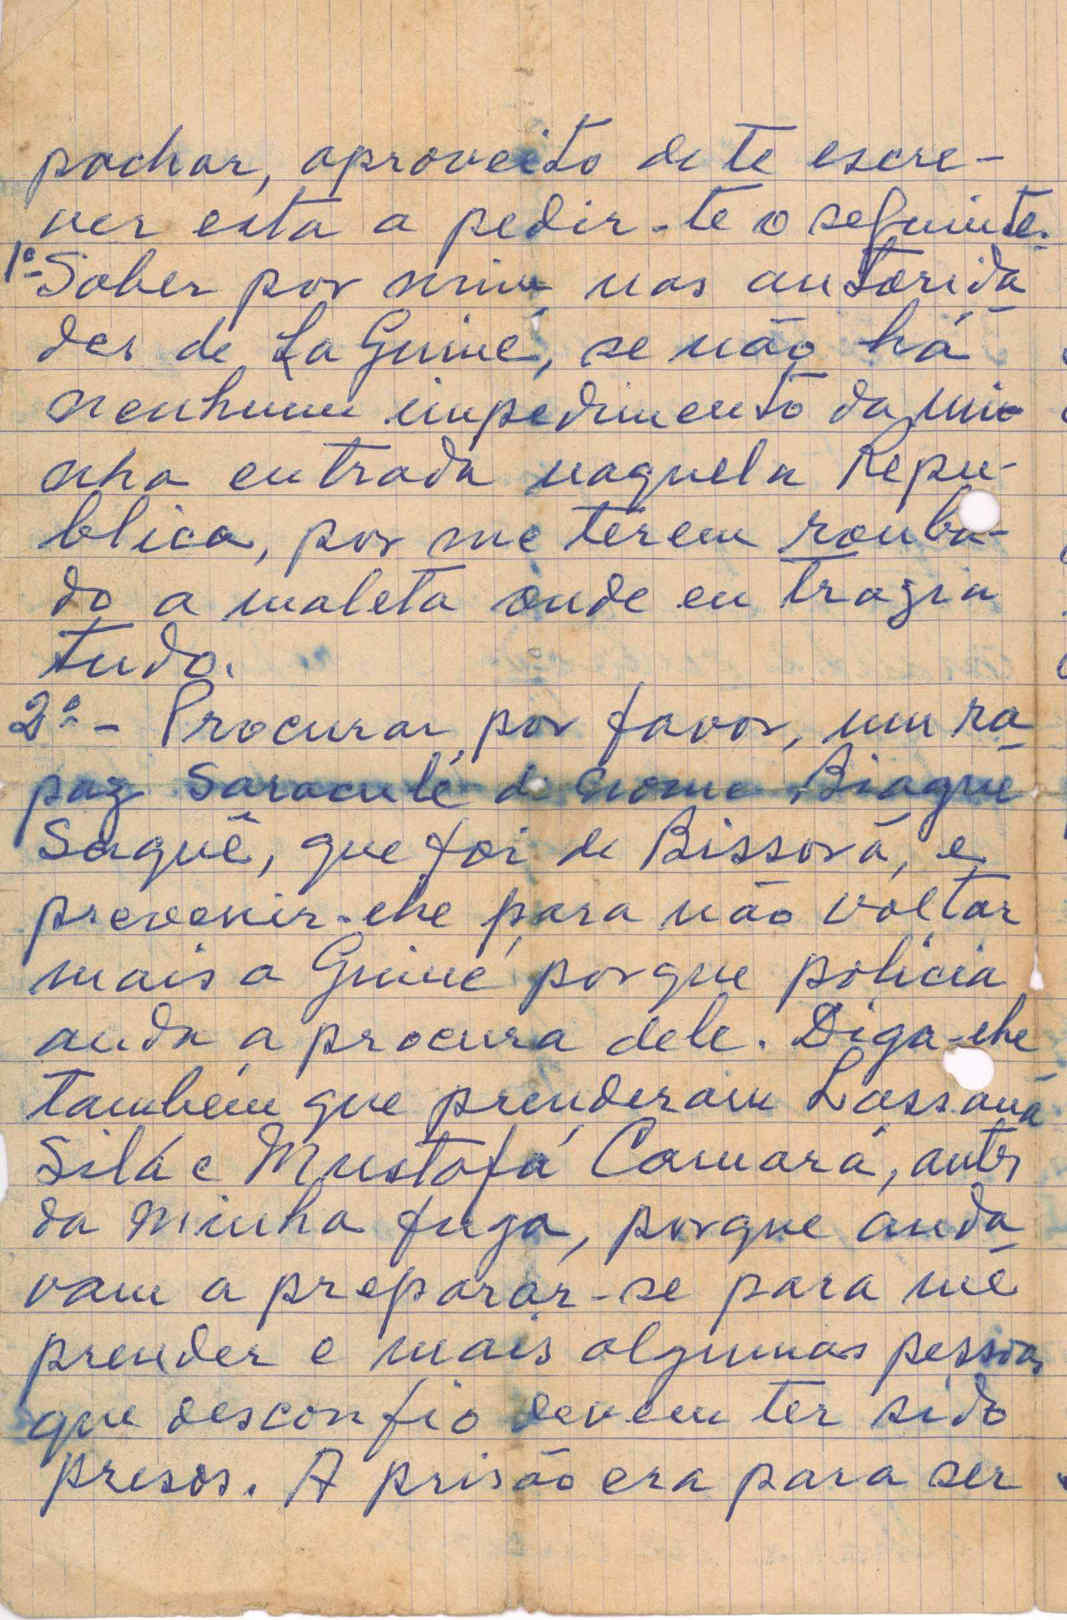 pachar, aproveito de te escre-
ver esta a pedir-te o seguinte.
1º- Saber por mim nas autorida
des de La Guiné, se não há
nenhum impedimento da mi
nha entrada naquela Repu-
blica, por me terem rouba-
do a maleta onde eu trazia
tudo.
2º - Procurar por favor, um ra
paz Saraculé de nome Biaguê
Saguê, que foi de Bissorã, e
prevenir-lhe para não voltar
mais a Guiné porque policia
anda a procura dele. Diga-lhe
também que prenderam Lassanã
Silá e Mustafá Camará, antes
da minha fuga, porque anda
vam a preparar-se para me
prender e mais algumas pessoas
que desconfio devem ter sido
presos. A prisão era para ser